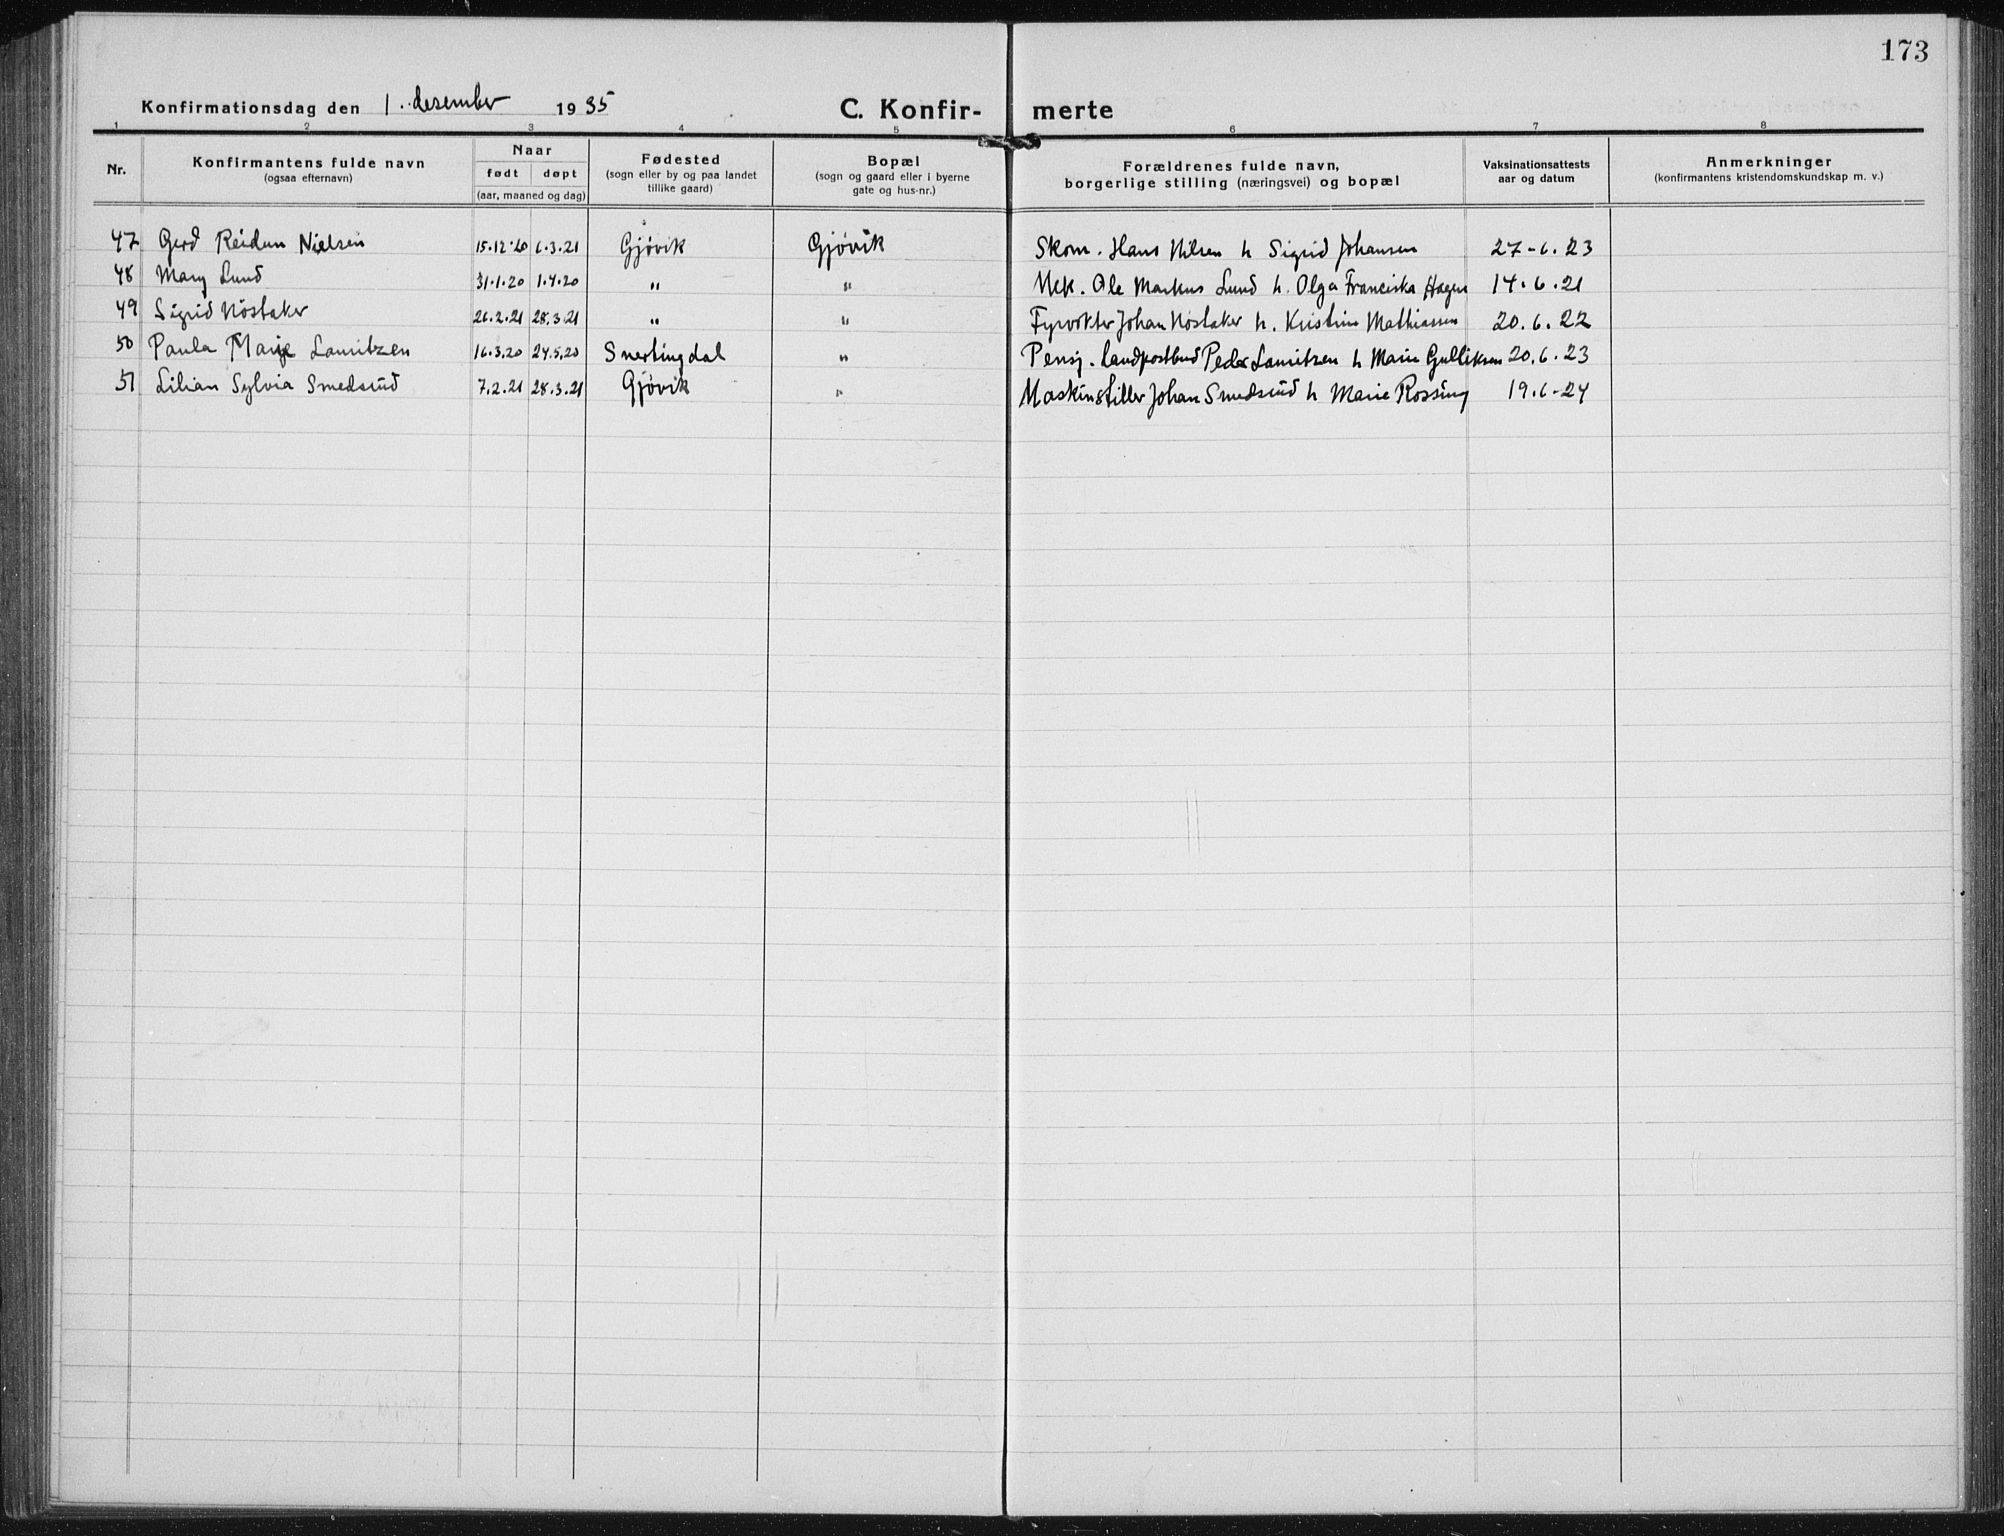 173
Konfirmationsdag den 1. desember 1935 C. Konfir- merte
1 2 3 4 5 6 7 8
Nr. Konfirmantens fulde navn (ogsaa efternavn) Naar født døpt (aar, maaned og dag) Fødested (sogn eller by og paa landet tillike gaard) Bopæl (sogn og gaard eller i byerne gate og hus-nr.) Forældrenes fulde navn, borgerlige stilling (næringsvei) og bopæl Vaksinationsattests aar og datum Anmerkninger (konfirmantens kristendomskundskap m. v.)
47 Gerd Reidun Nielsen 15.12.20 6.3.21 Gjøvik Gjøvik Skom. Hans Nilsen h Sigrid Johansen 27-6.23
48 Mary Lund 31.1.20 1.4.20 " " Mek. Ole Markus Lund h. Olga Franciska Hagen 14.6.21
49 Sigrid Nöstaker 26.2.21 28.3.21 " " Fyrvokter Johan Nöstaker h. Kristine Mathiassen 20.6.22
50 Paula Marie Lauritzen 16.3.20 24.5.20 Snertingdal " Pensj. Landpostbud Peder Lauritzen h Marie Gulliksen 20.6.23
51 Lilian Sylvia Smedsrud 7.2.21 28.3.21 Gjøvik " Maskinstiller Johan Smedsrud h Marie Rossing 19.6-24